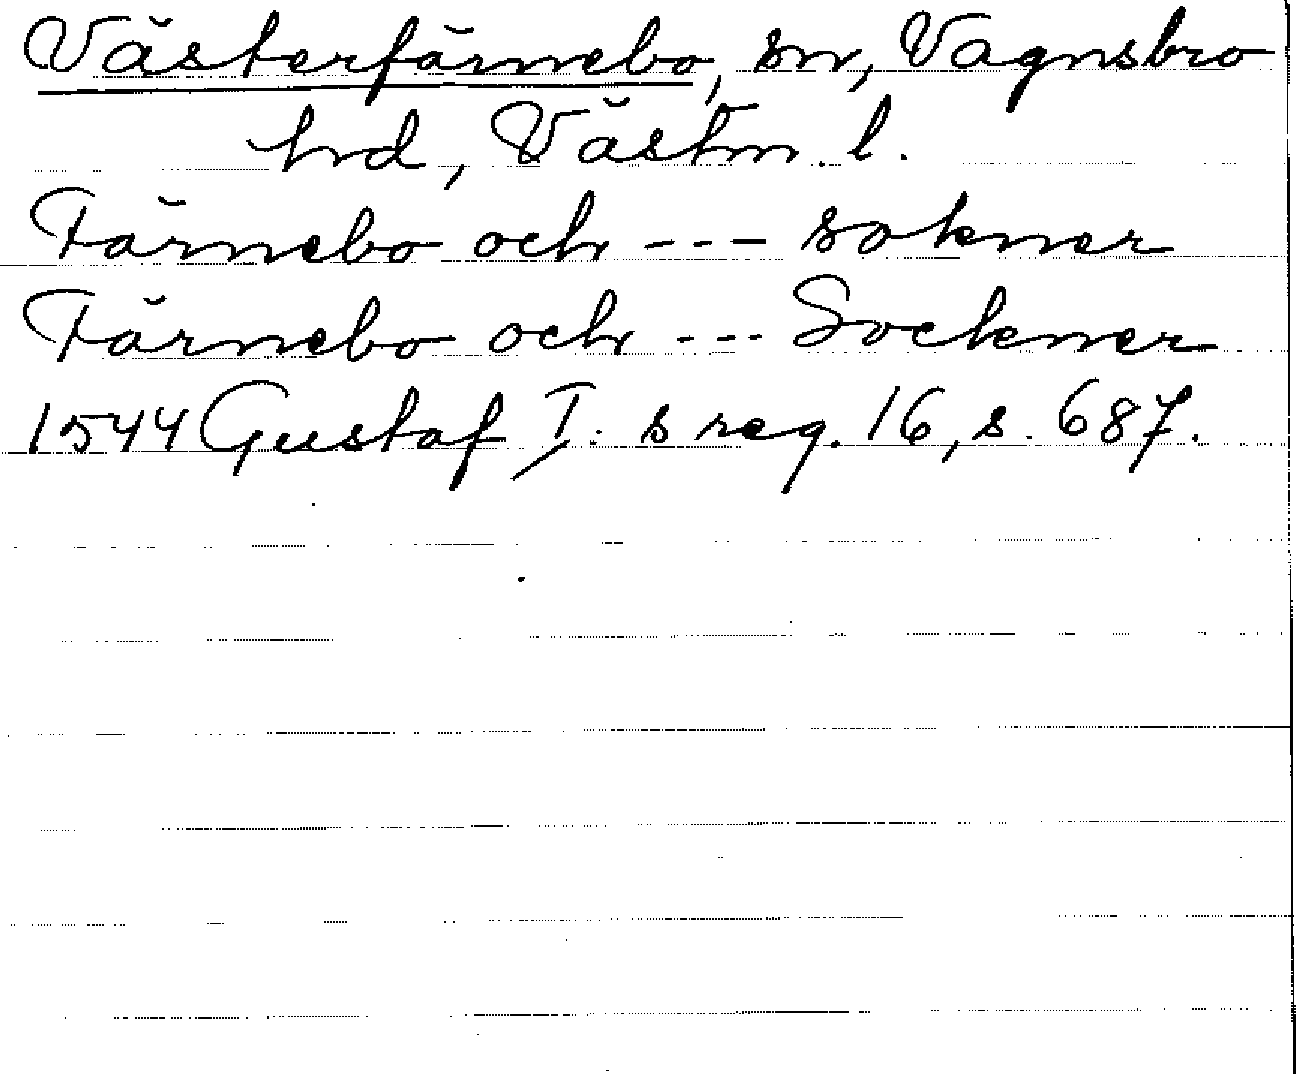 Västerfärnebo, sn, Vagnsbro
hrd, Västm. l.
Färnebo och --- sokner
Färnebo och --- Sockner
1544 Gustaf I:s reg. 16, s. 687.